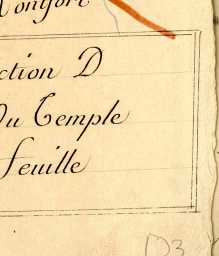 ontfort
ction D
Du Temple
feuille
D3